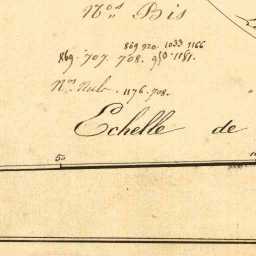 Nos Bis
869 920 1033 1166
869 · 707 · 708 · 950 · 1181 ·
Nos Nuls · 1176 · 708 ·
Echelle de
50